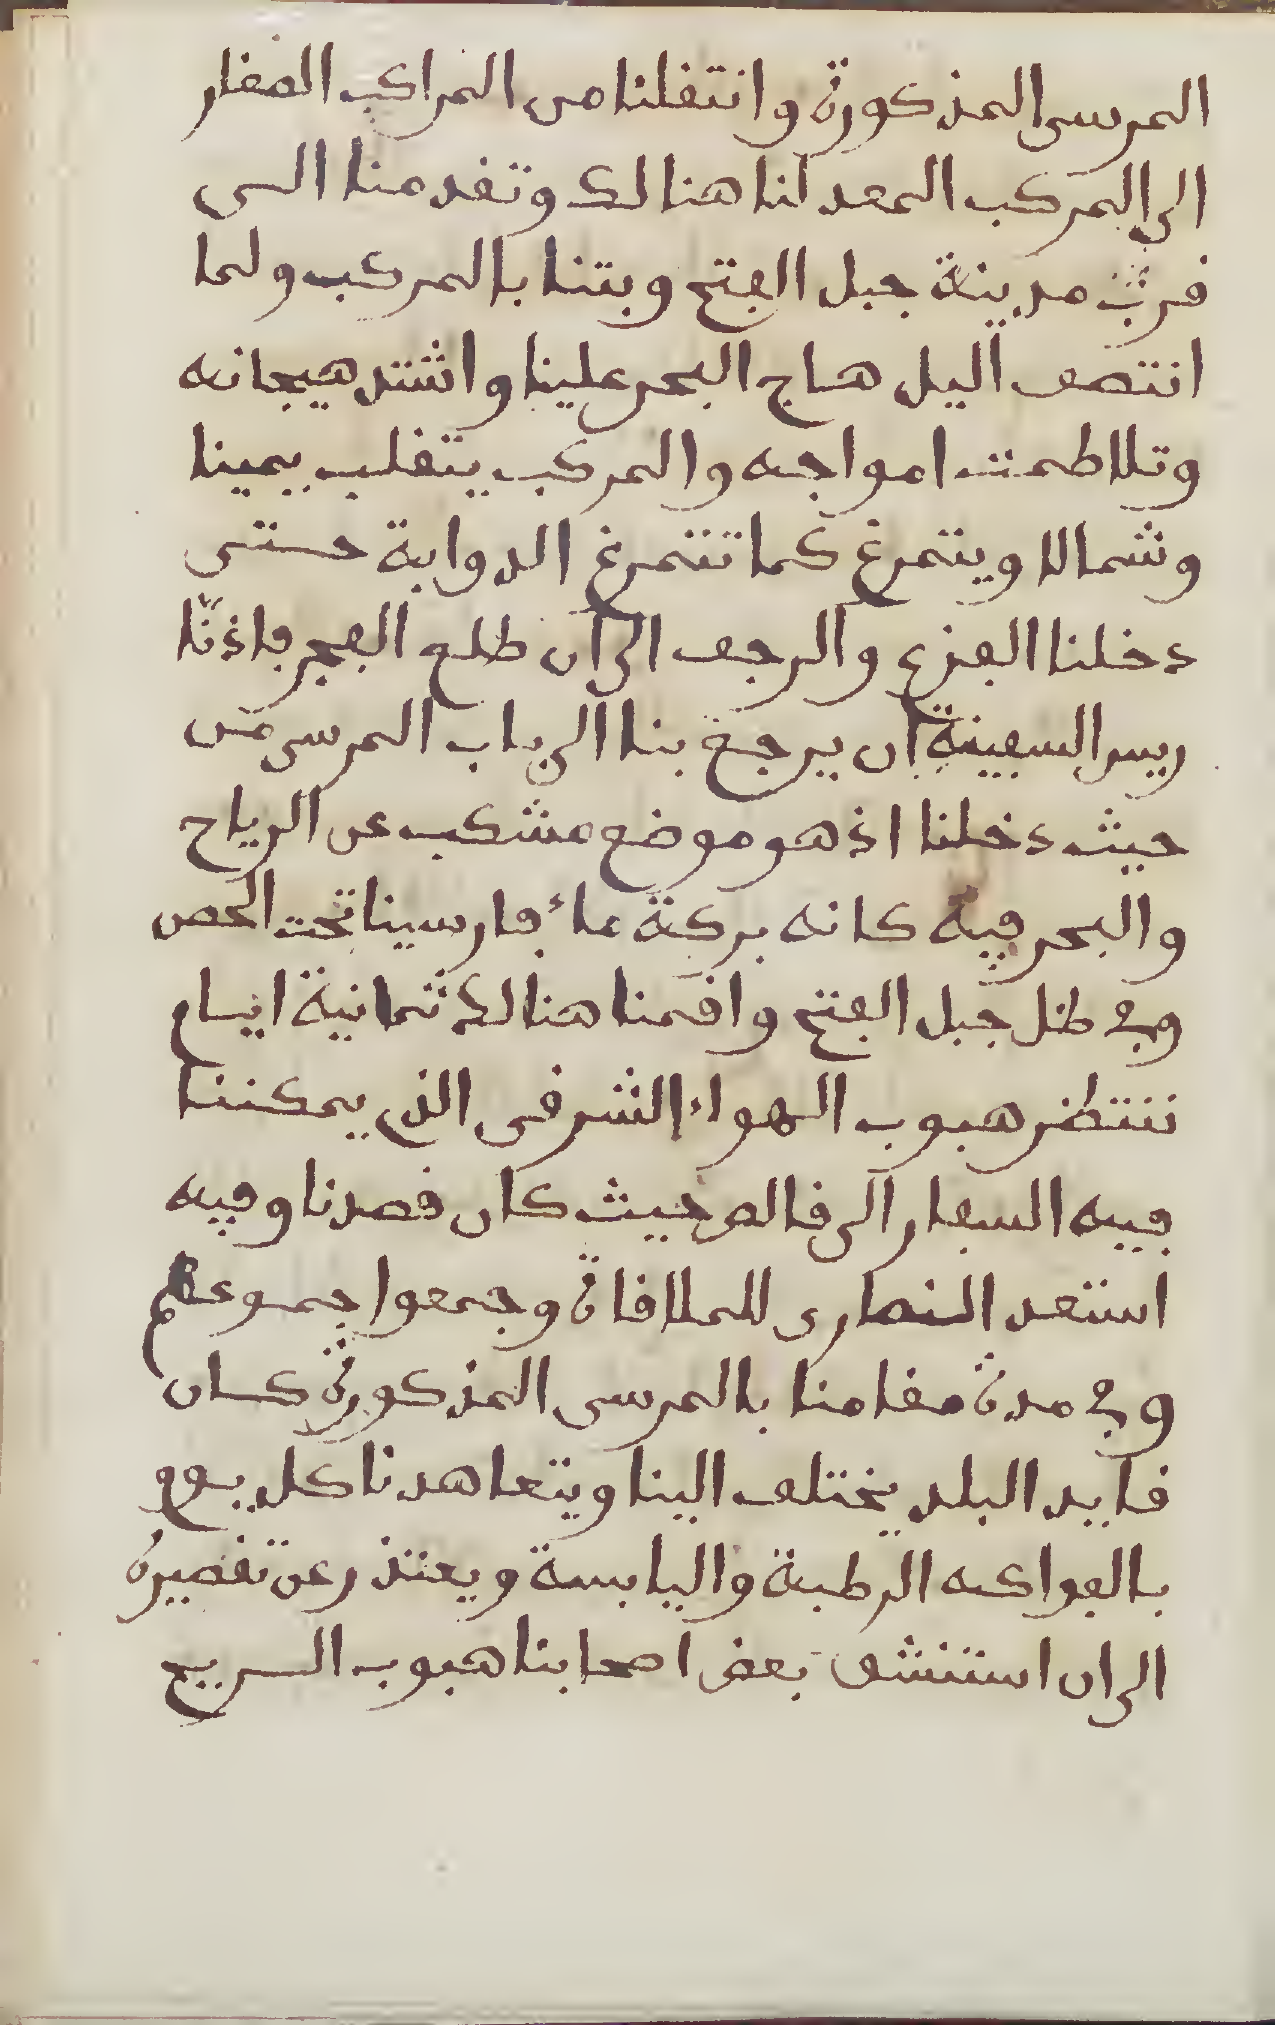 المرسى المذكورة وانتقلنا من المراكب الصغار
الى المركب المعد لنا هنالك وتقدمنا الى
قرب مدينة جبل الفتح وبتنا بالمركب ولما
انتصف اليل هاج البحر علينا واشتد هيجانه
وتلاطمت امواجه والمركب يتقلب يمينا
وشمالا ويتمرغ كما تتمرغ الدوابة حتى
دخلنا الفزع والرجف الى ان طلع الفجر فاذنّا
ريس السفينة ان يرجع بنا الى باب المرسى من
حيث دخلنا اذ هو موضع مشكب عن الرياح
والبحر فيه كانه بركة ماء فارسينا تحت الحصن
وفي ظل جبل الفتح واقمنا هنالك ثمانية ايام
ننتظر هبوب الهواء الشرقي الذي يمكننا
فيه السفار الى قالص حيث كان قصدنا وفيه
استعد النصارى للملاقاة وجمعوا جموعهم
وفي مدة مقامنا بالمرسى المذكورة كان
قايد البلد يختلف الينا ويتعاهدنا كل يوم
بالفواكه الرطبة واليابسة ويعتذر عن تقصيره
الى ان استنشق بعض اصحابنا هبوب الريح